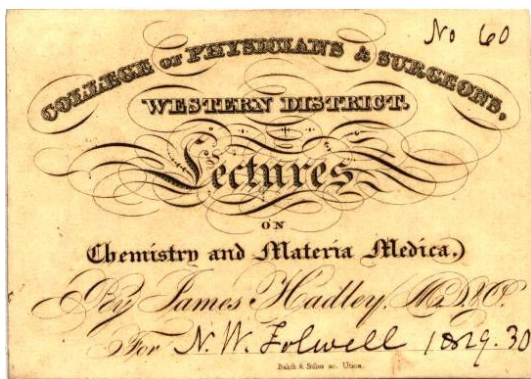 No 60
COLLEGE OF PHYSICIANS & SURGEONS,
WESTERN DISTRICT.
Lectures
ON
Chemistry and Materia Medica.
By James Hadley, M.D.
For N. W. Folwell 1829.30
Balch & Stiles sc. Utica.